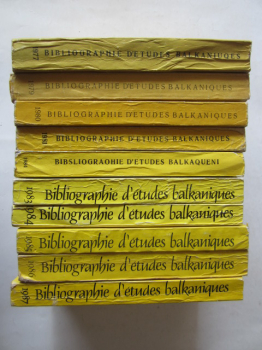 1977 BIBLIOGRAPHIE D'ETUDES BALKANIQUES
BIBLIOGRAPHIE D'ETUDES BALKANIQUES
1980 BIBLIOGRAPHIE D'ETUDES BALKANIQUES
1981 BIBLIOGRAPHIE D'ETUDES BALKANIQUES
BIBSLIOGRAOHIE D'ETUDES BALKAQUENI
1983 Bibliographie d'études balkaniques
1984 Bibliographie d'études balkaniques
Bibliographie d'études balkaniques
Bibliographie d'études balkaniques
1987 Bibliographie d'études balkaniques